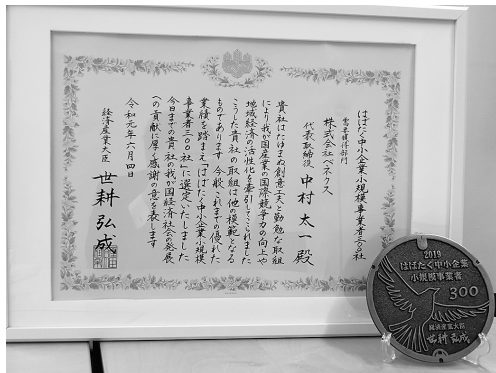 はばたく中小企業・小規模事業者三〇〇社
需要獲得部門
株式会社ベネクス
代表取締役　中村太一殿
貴社はたゆまぬ創意工夫と勤勉な取組
により我が国産業の国際競争力の向上や
地域経済の活性化を牽引してくられました
こうした貴社の取組は他の模範となる
ものであります 今般 これまでの優れた
業績を踏まえ「はばたく中小企業・小規模
事業者三〇〇社」に選定いたしました
今日までの貴社の我が国経済社会の発展
への貢献に厚く感謝の意を表します
令和元年六月四日
経済産業大臣　世耕弘成
2019
はばたく中小企業
小規模事業者
300
経済産業大臣
世耕弘成